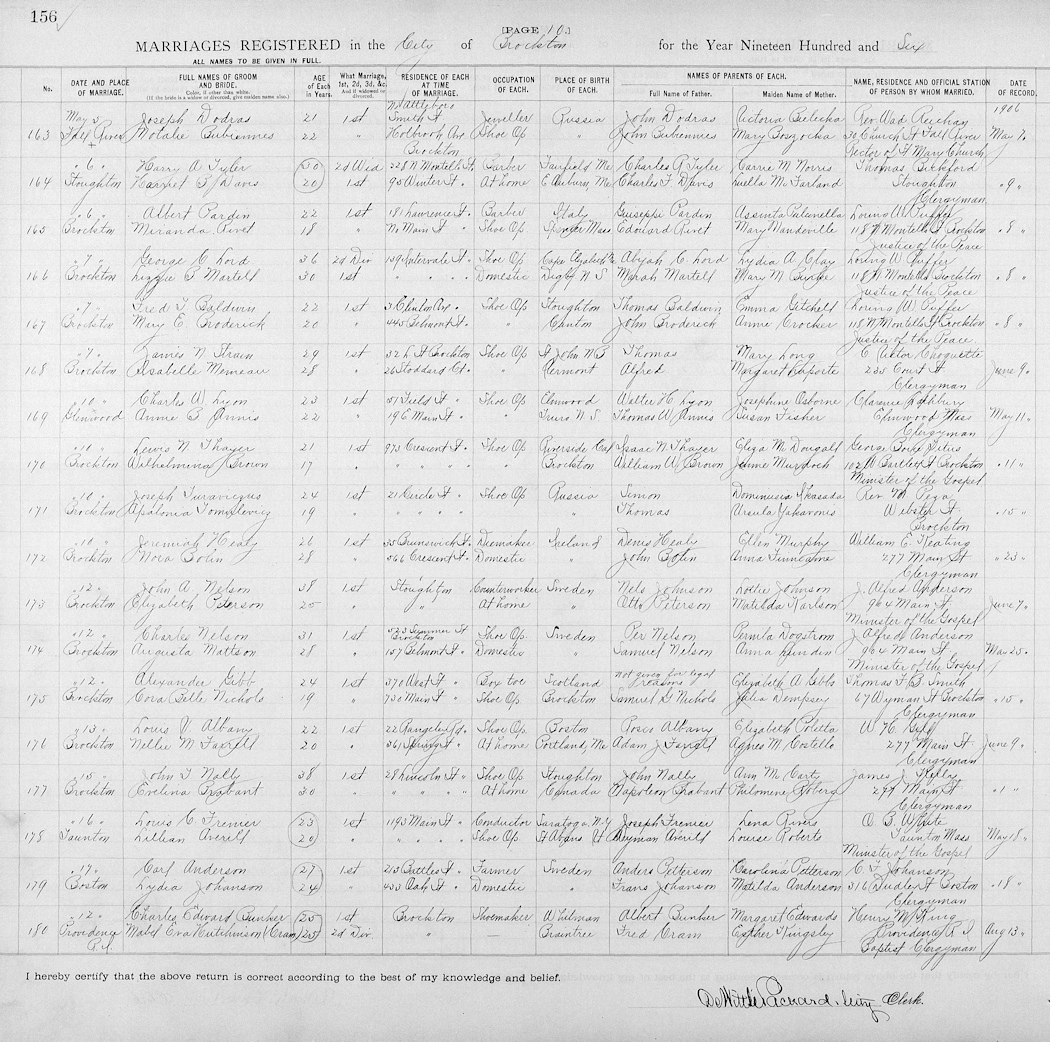 156
[PAGE 10.]
MARRIAGES REGISTERED in the City of Brockton for the Year Nineteen Hundred and Six
ALL NAMES TO BE GIVEN IN FULL.
No. DATE AND PLACE OF MARRIAGE. FULL NAMES OF GROOM AND BRIDE. Color, if other than white. (If the bride is a widow or divorced, give maiden name also.) AGE of Each in Years. What Marriage, 1st, 2d, 3d, &c. And if widowed or divorced. RESIDENCE OF EACH AT TIME OF MARRIAGE. OCCUPATION OF EACH. PLACE OF BIRTH OF EACH. NAMES OF PARENTS OF EACH. Full Name of Father. Maiden Name of Mother. NAME, RESIDENCE AND OFFICIAL STATION OF PERSON BY WHOM MARRIED. DATE OF RECORD.
1906
N. Attleboro
May 5 Joseph Dodras 21 1st Smith St Jeweller Russia John Dodras Victoria Bielecka Rev Wad Reichan
163 Fall River 22 " Holbrook Ave Shoe Op " John Mary 30 Church St Fall River May 7
Brockton Rector of St Mary Church
" 6 " Harry A Tyler 30 2d Wid 228 N Montello St Barber Fairfield Me Charles R Tyler Carrie M Norris Thomas Bickford
164 Stoughton Harriet S Davis 20 1st 90 Winter St At home E Auburn Me Charles F Davis Luella McFarland Stoughton " 9 "
Clergyman
" 6 " Albert Pardin 22 1st 181 Lawrence St Barber Italy Giuseppe Pardin Assinta Loring W Puffer
165 Brockton Miranda Rivet 18 " No Main St Shoe Op Spencer Mass Edouard Rivet Mary Mandeville 118 N Montello St Brockton " 8 "
Justice of the Peace
" 7 " George C Lord 36 2d Div 139 Intervale St Shoe Op Cape Elizabeth Me Abijah C Lord Lydia A Clay Loring W Puffer
166 Brockton Lizzie B Martell 30 1st " " " Domestic Digby N S Mary M Burke 118 N Montello Brockton " 8 "
Justice of the Peace
" 7 " Fred T Baldwin 22 1st 3 Clinton Av Shoe Op Stoughton Thomas Baldwin Emma Getchell Loring W Puffer
167 Brockton Mary E Broderick 20 " 445 Belmont St " Canton John Broderick Annie Crocker 118 N Montello St Brockton " 8 "
Justice of the Peace
" 7 " James N Strain 29 1st 32 L St Brockton Shoe Op St John N B Thomas Mary Long C Victor Choquette
168 Brockton Isabelle 28 " 26 Stoddard Ct " Vermont Alfred Margaret Laporte 235 Court St June 9
Clergyman
" 10 " Charles W Lyon 23 1st 51 Field St Shoe Op Elmwood Walter H Lyon Josephine Osborne Clarence
169 Elmwood Annie B Annis 22 " 19 E Main St " Truro N S Thomas W Annis Susan Fisher Elmwood Mass May 11
Clergyman
" 10 " Lewis N Thayer 21 1st 973 Crescent St Shoe Op Riverside Cal Isaac N Thayer Eliza McDougall George Titus
170 Brockton Wilhelmina Brown 17 " " " " " Brockton William W Brown Jennie Murdock 102 W Bartlett St Brockton " 11 "
Minister of the Gospel
" 10 " Joseph 24 1st 21 Circle St Shoe Op Russia Simon Rev
171 Brockton Apalonia 19 " " " " " " Thomas Ursula Webster St " 15 "
Brockton
" 10 " Jeremiah Healy 26 1st 35 Brunswick St Diemaker Ireland Denis Healy Ellen Murphy William E Keating
172 Brockton Nora Bohn 28 " 566 Crescent St Domestic " John Bohn Anna 277 Main St " 23 "
Clergyman
" 12 " John A Nelson 38 1st Stoughton Counterworker Sweden Nels Johnson Johnson J. Alfred Anderson
173 Brockton Elizabeth Peterson 25 " " At home " Otto Peterson Matilda Karlson 964 Main St June 7
Minister of the Gospel
" 12 " Charles Nelson 31 1st 523 Summer St Brockton Shoe Op Sweden Per Nelson Pernila Dogstrom J Alfred Anderson
174 Brockton Augusta Mattson 28 " 157 Belmont St Domestic " Samuel Nelson Anna Lundin 964 Main St May 25
Minister of the Gospel
" 12 " Alexander Gibb 24 1st 370 West St Box toe Scotland not given for legal reasons Elizabeth A Gibbs Thomas F B Smith
175 Brockton Cora Belle Nichols 19 " 730 Main St Shoe Op Brockton Samuel G Nichols Julia Dempsey 67 Wyman St Brockton " 15 "
Clergyman
" 13 " Louis V Albany 22 1st 22 Rangeley Rd Shoe Op Boston Rosco Albany Elizabeth Coletta
176 Brockton Nellie M Farrell 20 " 361 Spring St At home Portland Me Adam J Farrell Agnes M Costello 277 Main St June 9
Clergyman
" 15 " John F Nally 38 1st 28 Lincoln St Shoe Op Stoughton John Nally Ann McCarty James J Kelly
177 Brockton Evelina Brabant 30 " " " " At home Canada Napoleon Brabant Philomene 277 Main St " 1 "
Clergyman
" 16 " Louis C Fremer 23 1st 1193 Main St Conductor Saratoga N.Y Joseph Fremer Lena Rivers O B White
178 Taunton Lillian Averill 20 " Shoe Op St Albans Vt Averill Louise Roberts Taunton Mass May 18
Minister of the Gospel
" 17 " Carl Anderson 27 1st 213 Battles St Farmer Sweden Anders Petterson Carolina Petterson C. F Johanson
179 Boston Lydia Johanson 24 " 433 Oak St Domestic " Frans Johanson Matilda Anderson 316 Dudley St Boston " 18 "
Clergyman
" 12 " Charles Edward Bunker 25 1st Brockton Shoemaker Whitman Albert Bunker Margaret Edwards Henry M King
180 Providence R.I. Mabel Eva Hutchinson (Cram) 25 2d Div " — Braintree Fred Cram Esther Kingsley Providence R I Aug 13
Baptist Clergyman
I hereby certify that the above return is correct according to the best of my knowledge and belief.
DeWitt C Packard, City Clerk.